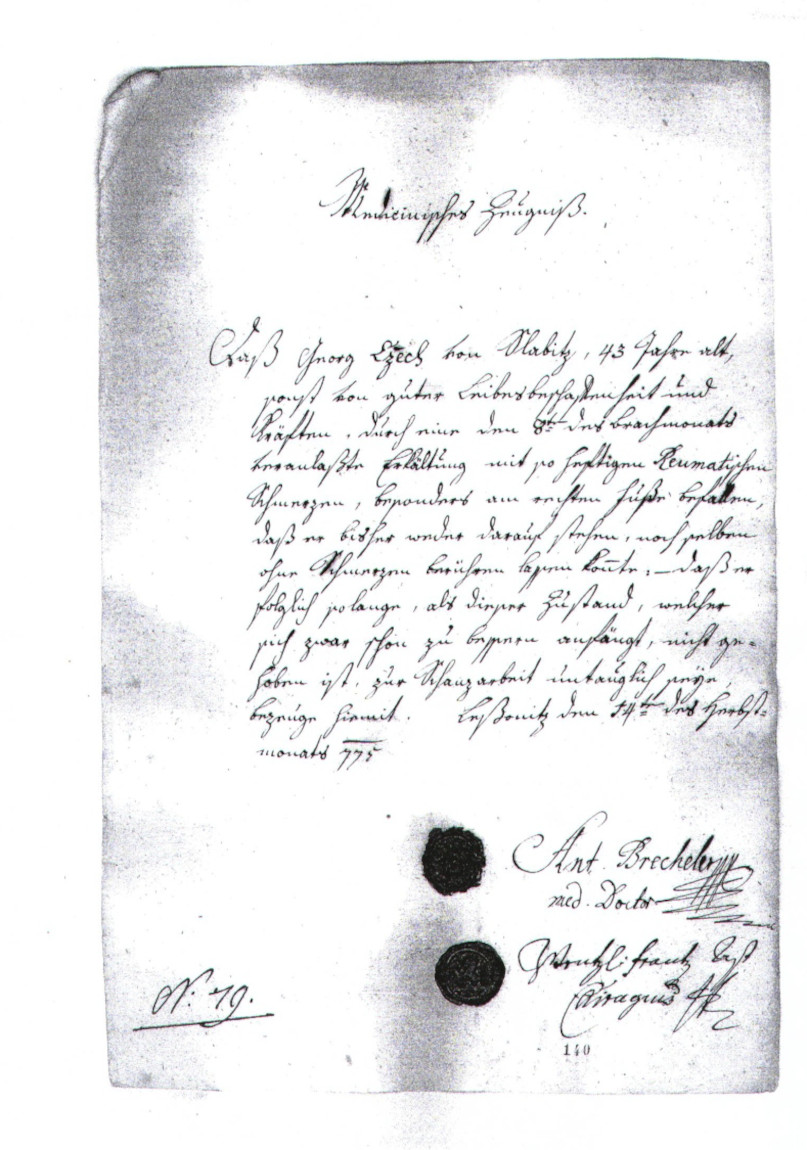 Medicinisches Zeugniß.
Daß Georg Czech von Slabitz, 43 Jahre alt,
sonst von guter Leibesbeschaffenheit und
Kräften, durch eine den 8ten des Brachmonats
veranlaßte Erkältung mit so heftigen Reumatischen
Schmerzen, besonders am rechten Fuße befallen,
daß er bisher weder darauf stehen, noch selben
ohne Schmerzen berühren lassen konnte; – daß er
folglich solange, als dieser Zustand, welcher
sich zwar schon zu bessern anfängt, nicht ge=
hoben ist, zur Schanzarbeit untauglich seye,
bezeuge hiemit. Leßonitz den 14ten des Herbst=
monats 775
Ant. Brecheler
med. Doctor
Wentzl: Frantz
N: 79.
140